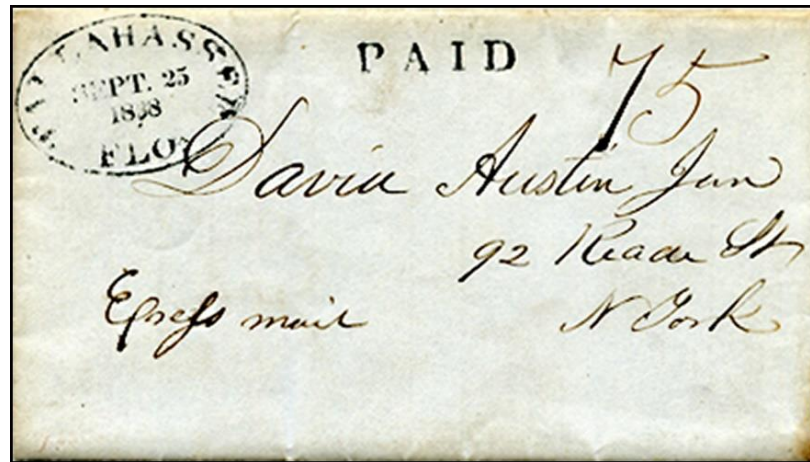 TALLAHASSEE
SEPT. 25
1838
FLO.
PAID
75
David Austin Jun
92 Reade St
Express mail
N York